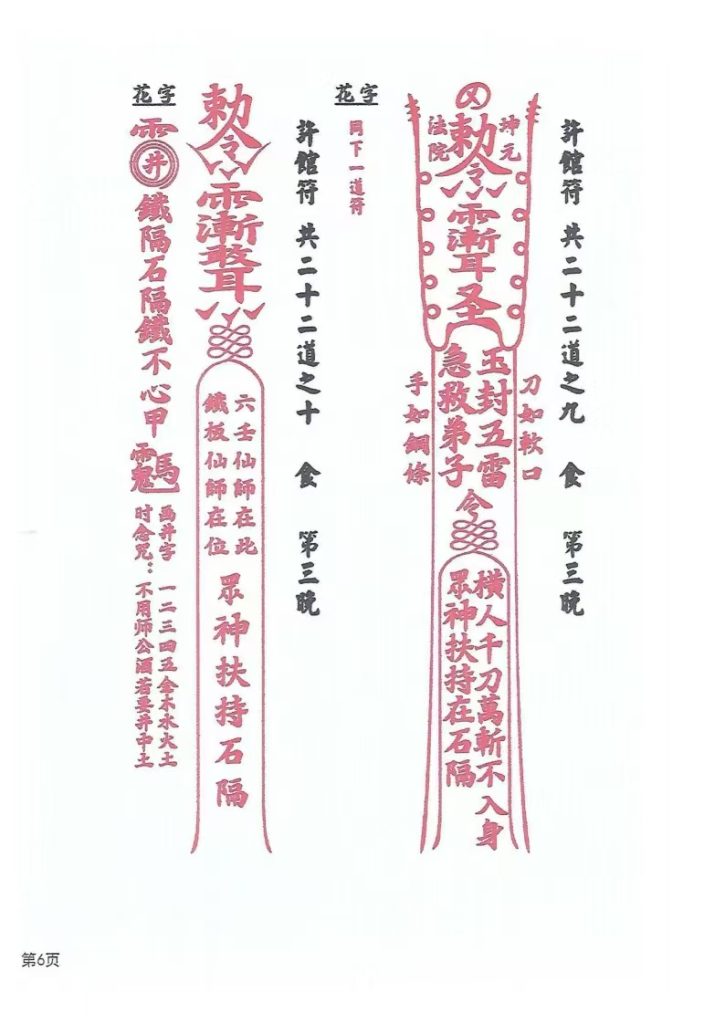 許館符 共二十二道之九 食 第三晚
勅令
坤元
法院
圣
玉封五雷
急救弟子
令
刀如軟口
手如鋼條
橫人千刀萬斬不入身
眾神扶持在石隔
花字
同下一道符
許館符 共二十二道之十 食 第三晚
勅令
六壬仙師在此
鐵板仙師在位
眾神扶持石隔
花字
井
鐵隔石隔鐵不心甲
画井字
时念咒：
一二三四五金木水火土
不用师公酒若要井中土
第6页